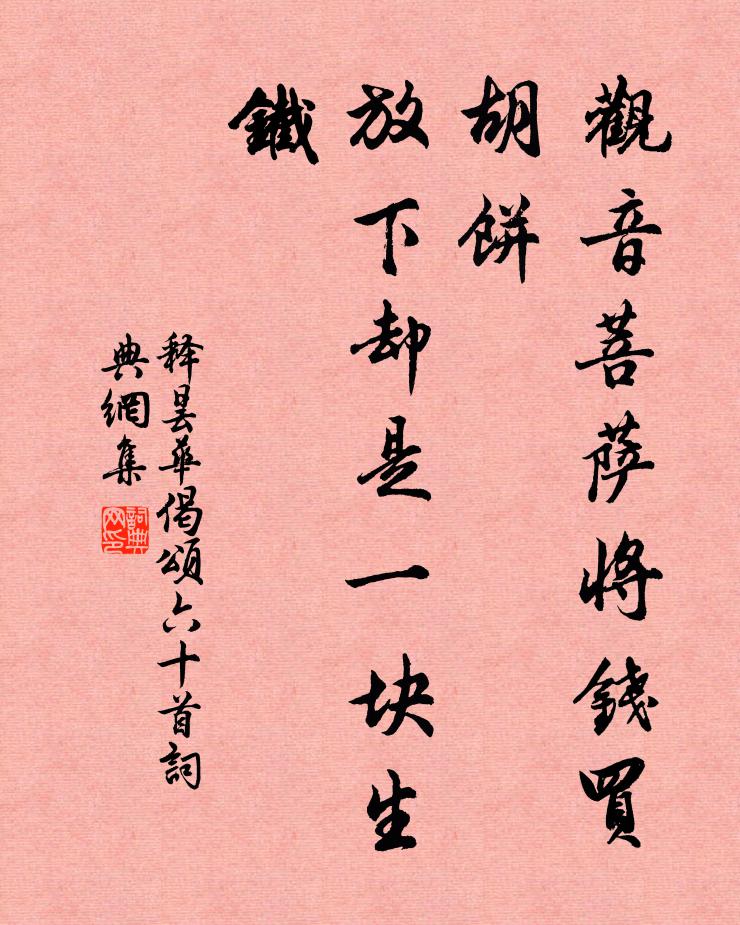 觀音菩薩將錢買
胡餅
放下却是一块生
鐵
释昙華偈頌六十首詞
典網集
詞典網印